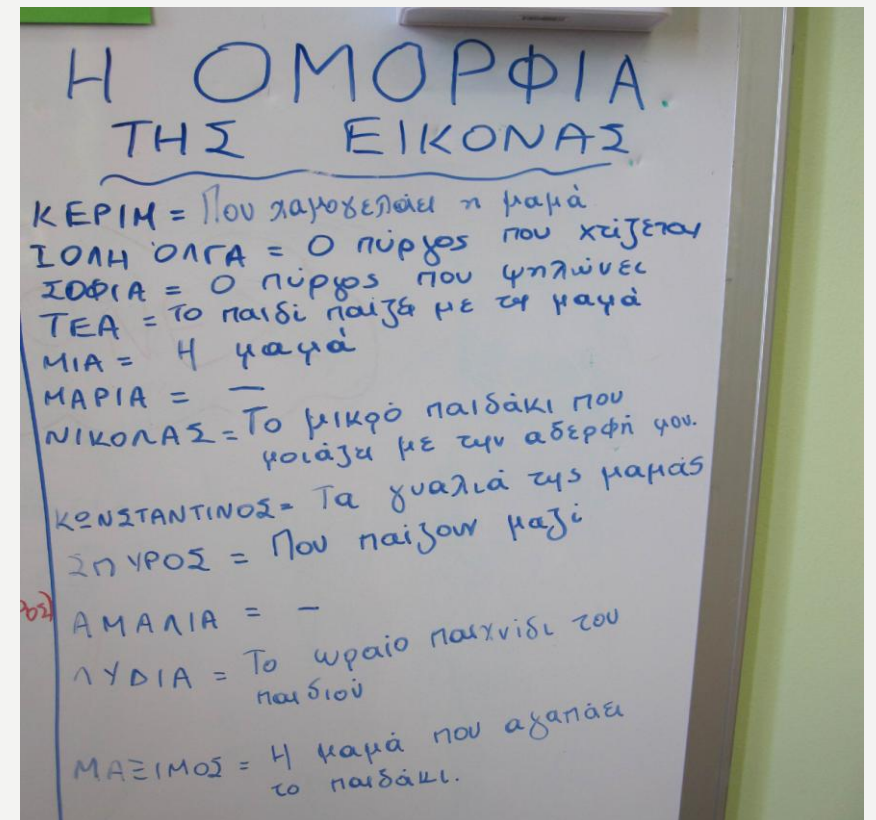 Η ΟΜΟΡΦΙΑ.
ΤΗΣ ΕΙΚΟΝΑΣ
ΚΕΡΙΜ = Που χαμογελάει η μαμά
ΙΟΛΗ ΌΛΓΑ = Ο πύργος που χτίζεται
ΣΟΦΙΑ = Ο πύργος που ψηλώνει
ΤΕΑ = Το παιδί παίζει με τη μαμά
ΜΙΑ = Η μαμά
ΜΑΡΙΑ = —
ΝΙΚΟΛΑΣ = Το μικρό παιδάκι που
μοιάζει με την αδερφή μου.
ΚΩΝΣΤΑΝΤΙΝΟΣ = Τα γυαλιά της μαμάς
ΣΠΥΡΟΣ = Που παίζουν μαζί
ΑΜΑΛΙΑ = —
ΛΥΔΙΑ = Το ωραίο παιχνίδι του
παιδιού
ΜΑΞΙΜΟΣ = Η μαμά που αγαπάει
το παιδάκι.